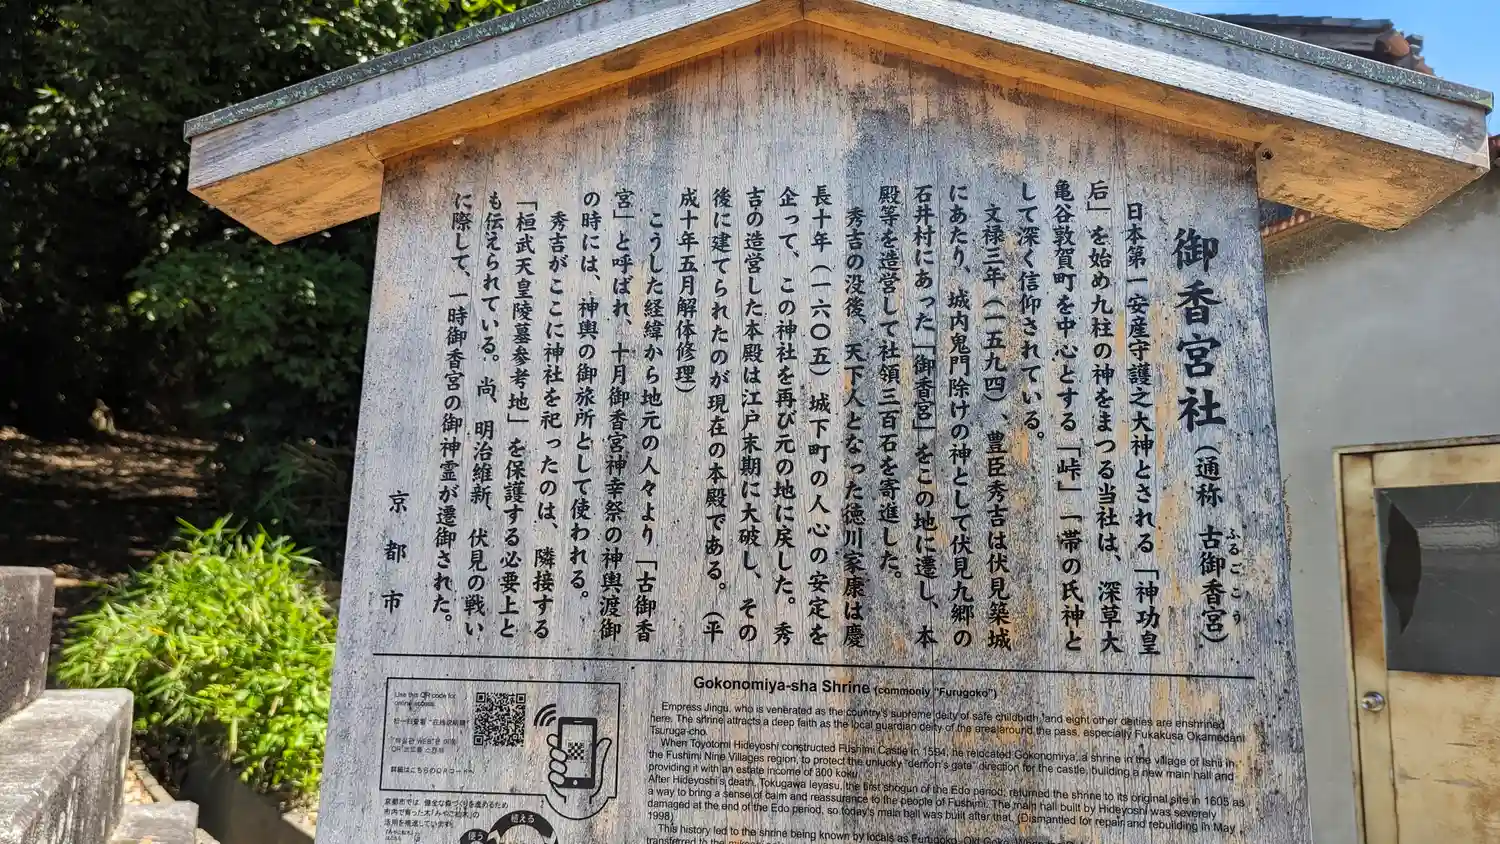 御香宮社（通称　古御香宮）
ふるごこう
日本第一安産守護之大神とされる「神功皇
后」を始め九柱の神をまつる当社は、深草大
亀谷敦賀町を中心とする「峠」一帯の氏神と
して深く信仰されている。
文禄三年（一五九四）、豊臣秀吉は伏見築城
にあたり、城内鬼門除けの神として伏見九郷の
石井村にあった「御香宮」をこの地に遷し、本
殿等を造営して社領三百石を寄進した。
秀吉の没後、天下人となった徳川家康は慶
長十年（一六〇五）城下町の人心の安定を
企って、この神社を再び元の地に戻した。秀
吉の造営した本殿は江戸末期に大破し、その
後に建てられたのが現在の本殿である。（平
成十年五月解体修理）
こうした経緯から地元の人々より「古御香
宮」と呼ばれ、十月御香宮神幸祭の神輿渡御
の時には、神輿の御旅所として使われる。
秀吉がここに神社を祀ったのは、隣接する
「桓武天皇陵墓参考地」を保護する必要上と
も伝えられている。尚、明治維新、伏見の戦い
に際して、一時御香宮の御神霊が遷御された。
京都市
Gokonomiya-sha Shrine (commonly "Furugoko")
Empress Jingu, who is venerated as the country's supreme deity of safe childbirth, and eight other deities are enshrined
here. The shrine attracts a deep faith as the local guardian deity of the area around the pass, especially Fukakusa Okamedani
Tsuruga-cho.
When Toyotomi Hideyoshi constructed Fushimi Castle in 1594, he relocated Gokonomiya, a shrine in the village of Ishii in
the Fushimi Nine Villages region, to protect the unlucky "demon's gate" direction for the castle, building a new main hall and
providing it with an estate income of 300 koku.
After Hideyoshi's death, Tokugawa Ieyasu, the first shogun of the Edo period, returned the shrine to its original site in 1605 as
a way to bring a sense of calm and reassurance to the people of Fushimi. The main hall built by Hideyoshi was severely
damaged at the end of the Edo period, so today's main hall was built after that. (Dismantled for repair and rebuilding in May
1998)
This history led to the shrine being known by locals as Furugoko
Use this QR code for
online access.
詳細はこちらのQRコードへ
京都市では、健全な森づくりを進めるため
市内で育った木「みやこ杣木」の
活用を推進しています
植える
使う